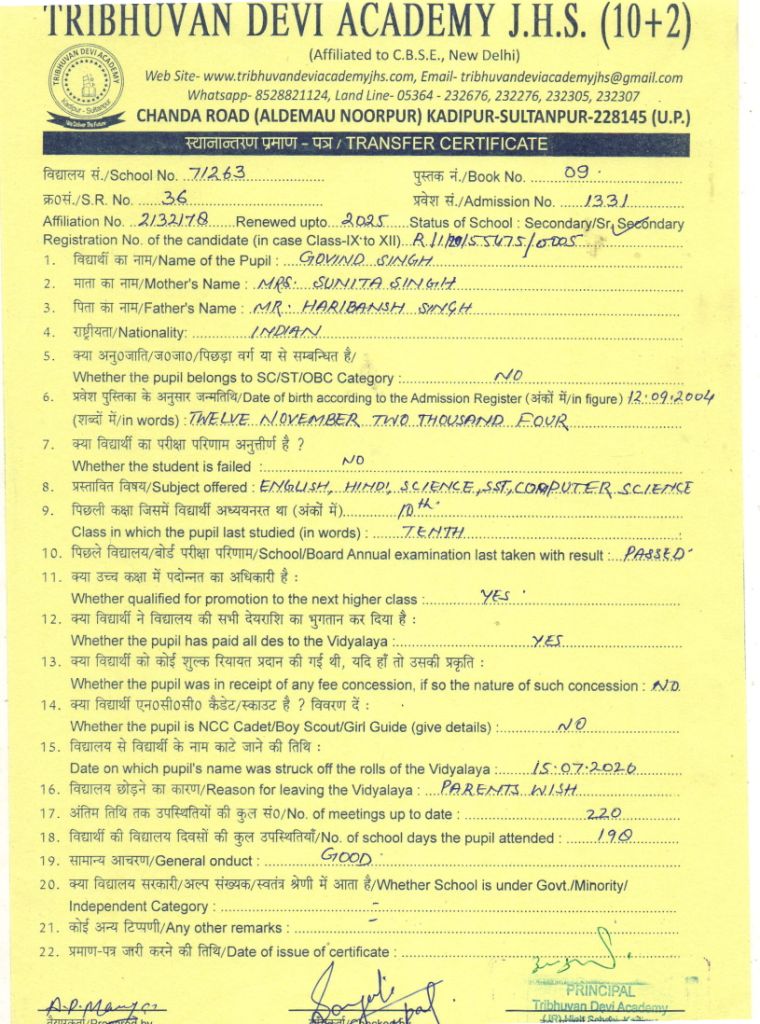 TRIBHUVAN DEVI ACADEMY J.H.S. (10+2)
(Affiliated to C.B.S.E., New Delhi)
TRIBHUVAN DEVI ACADEMY
Kadipur - Sultanpur
We Deliver The Future
Web Site- www.tribhuvandeviacademyjhs.com, Email- tribhuvandeviacademyjhs@gmail.com
Whatsapp- 8528821124, Land Line- 05364 - 232676, 232276, 232305, 232307
CHANDA ROAD (ALDEMAU NOORPUR) KADIPUR-SULTANPUR-228145 (U.P.)
स्थानान्तरण प्रमाण - पत्र / TRANSFER CERTIFICATE
विद्यालय सं./School No. 71263 पुस्तक नं./Book No. 09
क्र०सं./S.R. No. 36 प्रवेश सं./Admission No. 1331
Affiliation No. 2132178 Renewed upto 2025 Status of School : Secondary/Sr. Secondary
Registration No. of the candidate (in case Class-IX to XII) R/1/20/55475/0005
1. विद्यार्थी का नाम/Name of the Pupil : GOVIND SINGH
2. माता का नाम/Mother's Name : MRS. SUNITA SINGH
3. पिता का नाम/Father's Name : MR. HARIBANSH SINGH
4. राष्ट्रीयता/Nationality: INDIAN
5. क्या अनु०जाति/ज०जा०/पिछड़ा वर्ग या से सम्बन्धित है/
Whether the pupil belongs to SC/ST/OBC Category : NO
6. प्रवेश पुस्तिका के अनुसार जन्मतिथि/Date of birth according to the Admission Register (अंकों में/in figure) 12.09.2004
(शब्दों में/in words) : TWELVE NOVEMBER TWO THOUSAND FOUR
7. क्या विद्यार्थी का परीक्षा परिणाम अनुत्तीर्ण है ?
Whether the student is failed : NO
8. प्रस्तावित विषय/Subject offered : ENGLISH, HINDI, SCIENCE, SST, COMPUTER SCIENCE
9. पिछली कक्षा जिसमें विद्यार्थी अध्ययनरत था (अंकों में) 10th
Class in which the pupil last studied (in words) : TENTH
10. पिछले विद्यालय/बोर्ड परीक्षा परिणाम/School/Board Annual examination last taken with result : PASSED
11. क्या उच्च कक्षा में पदोन्नत का अधिकारी है :
Whether qualified for promotion to the next higher class : YES
12. क्या विद्यार्थी ने विद्यालय की सभी देयराशि का भुगतान कर दिया है :
Whether the pupil has paid all des to the Vidyalaya : YES
13. क्या विद्यार्थी को कोई शुल्क रियायत प्रदान की गई थी, यदि हाँ तो उसकी प्रकृति :
Whether the pupil was in receipt of any fee concession, if so the nature of such concession : NO
14. क्या विद्यार्थी एन०सी०सी० कैडेट/स्काउट है ? विवरण दें :
Whether the pupil is NCC Cadet/Boy Scout/Girl Guide (give details) : NO
15. विद्यालय से विद्यार्थी के नाम काटे जाने की तिथि :
Date on which pupil's name was struck off the rolls of the Vidyalaya : 15.07.2020
16. विद्यालय छोड़ने का कारण/Reason for leaving the Vidyalaya : PARENTS WISH
17. अंतिम तिथि तक उपस्थितियों की कुल सं०/No. of meetings up to date : 220
18. विद्यार्थी की विद्यालय दिवसों की कुल उपस्थितियाँ/No. of school days the pupil attended : 198
19. सामान्य आचरण/General onduct : GOOD
20. क्या विद्यालय सरकारी/अल्प संख्यक/स्वतंत्र श्रेणी में आता है/Whether School is under Govt./Minority/
Independent Category : -
21. कोई अन्य टिप्पणी/Any other remarks : -
22. प्रमाण-पत्र जारी करने की तिथि/Date of issue of certificate :
PRINCIPAL
Tribhuvan Devi Academy